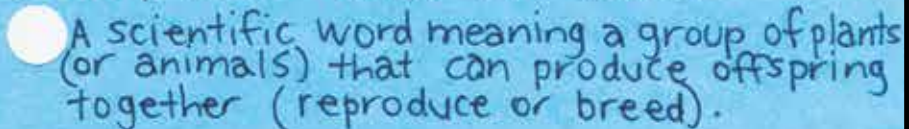 A scientific word meaning a group of plants
(or animals) that can produce offspring
together (reproduce or breed).